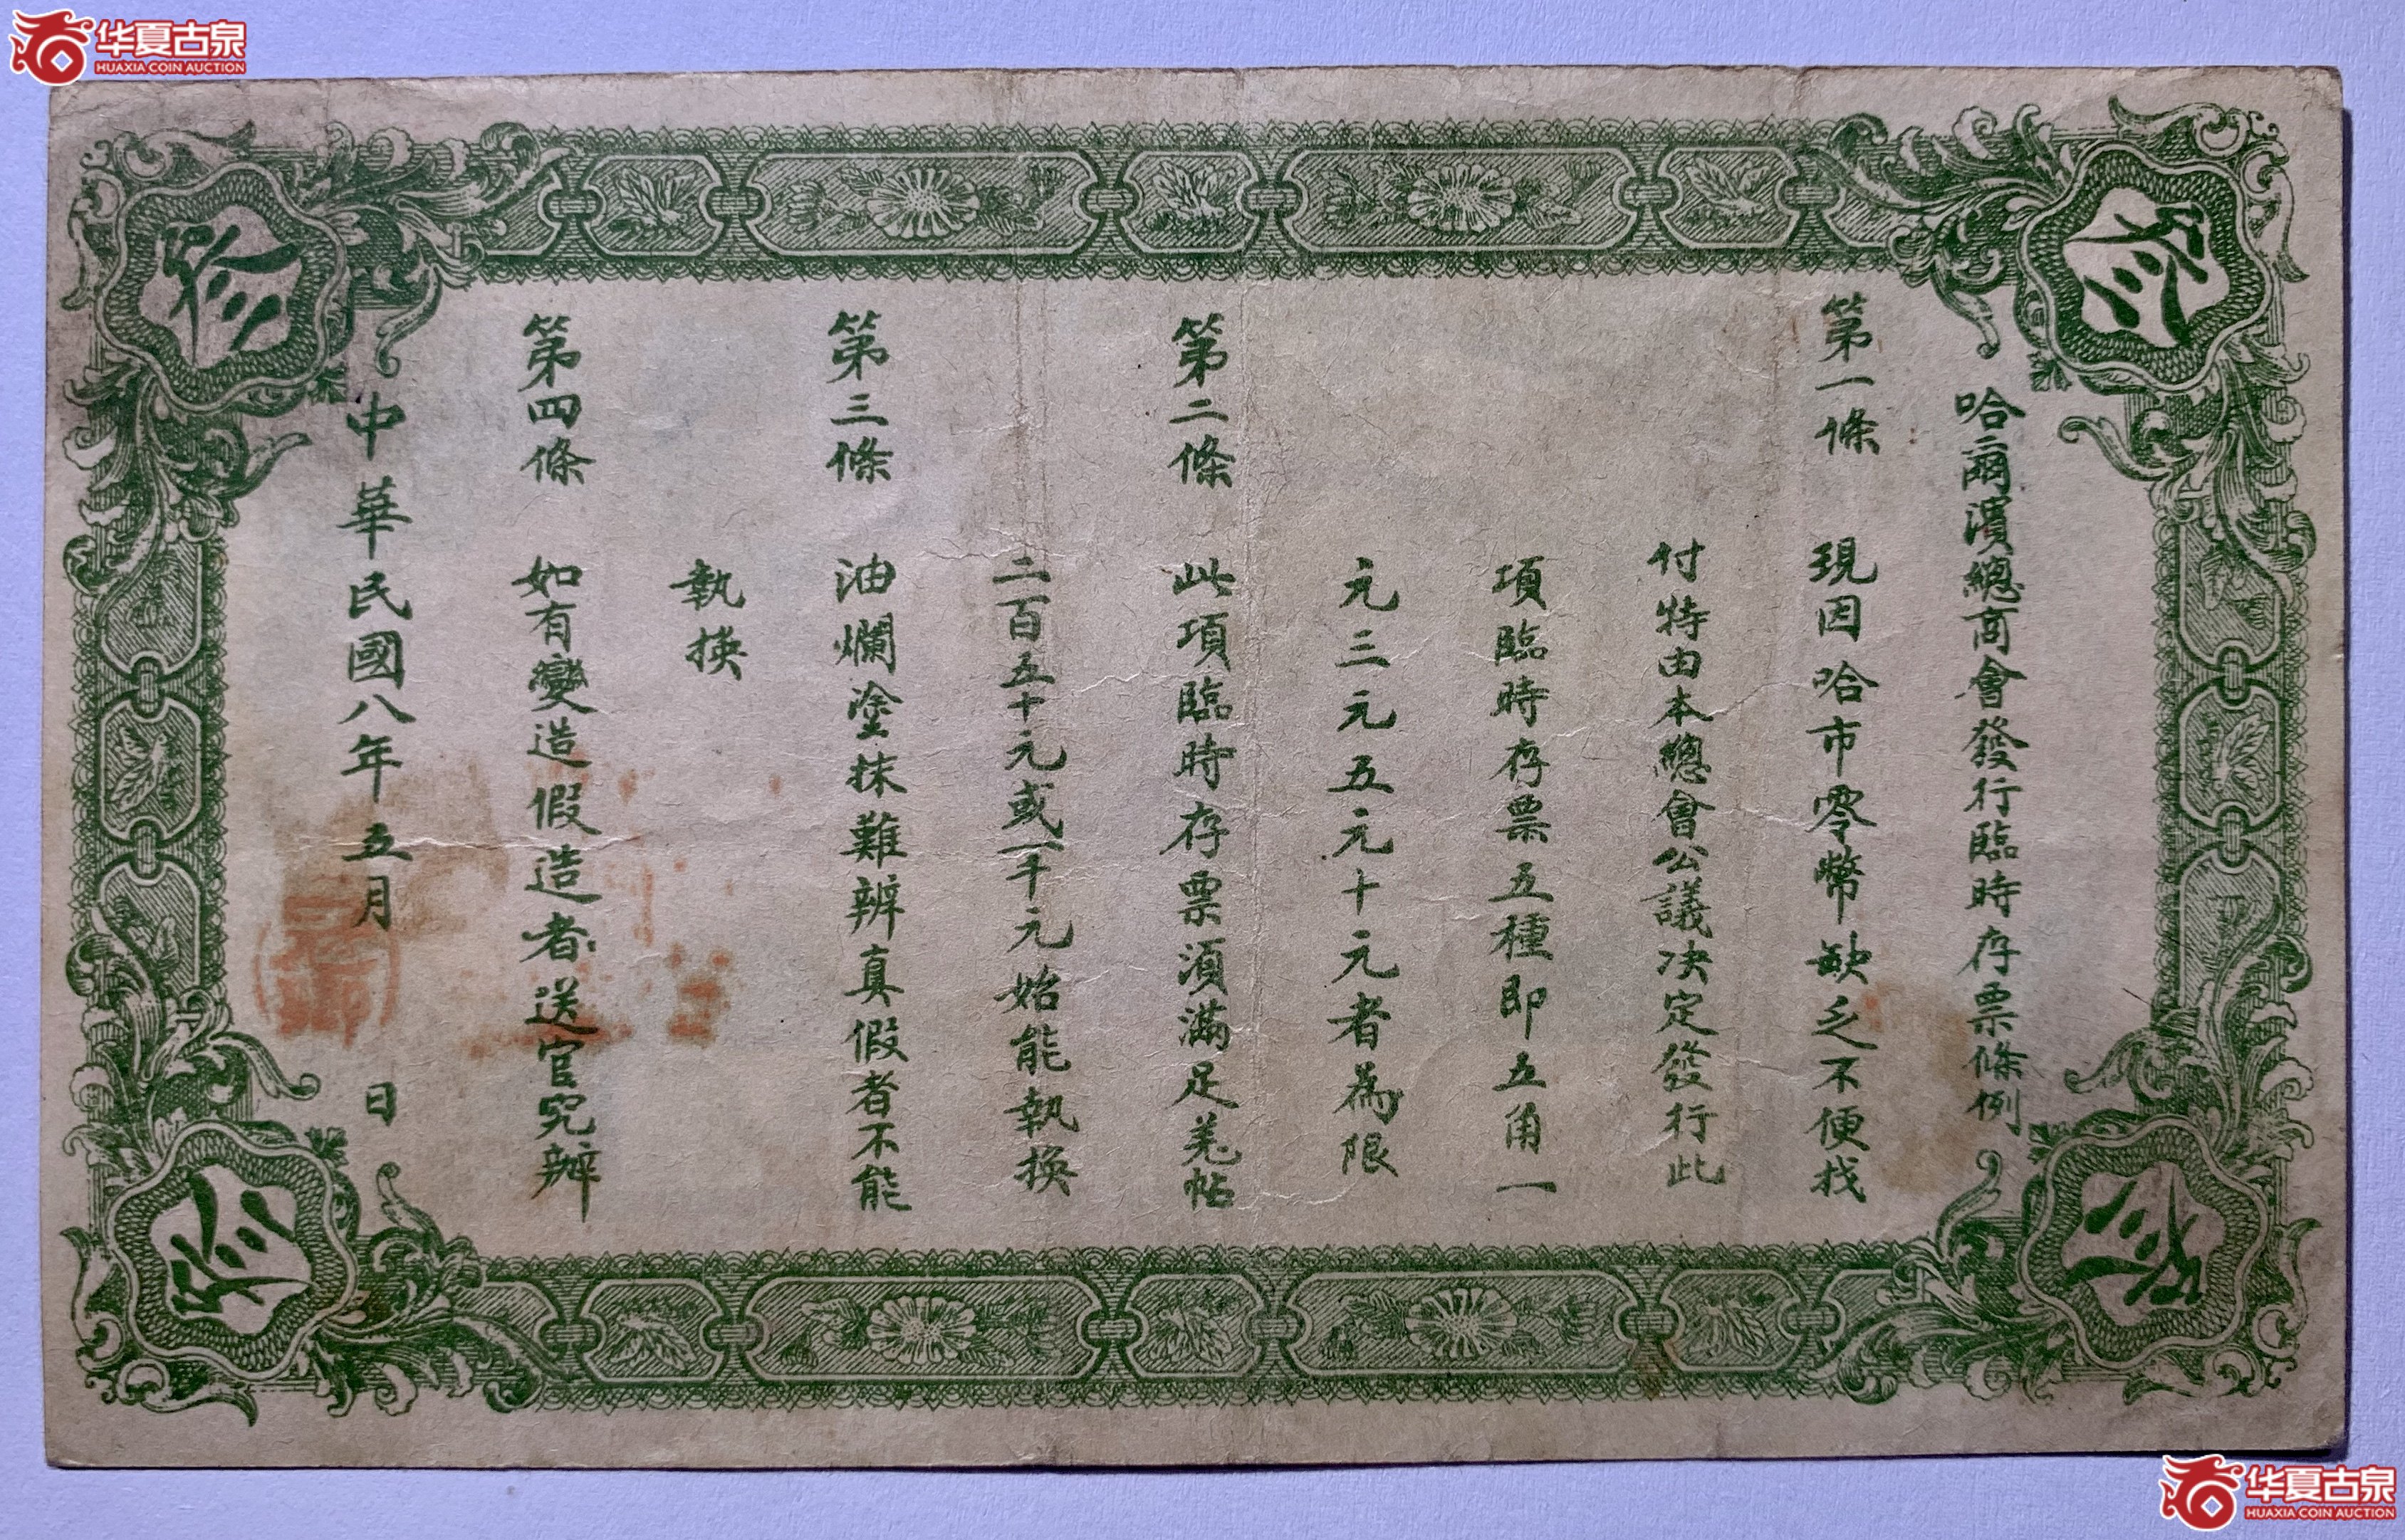 华夏古泉
HUAXIA COIN AUCTION
叁
叁
哈爾濱總商會發行臨時存票條例
第一條 現因哈市零幣缺乏不便找
付特由本總會公議決定發行此
項臨時存票五種即五角一
元三元五元十元者為限
第二條 此項臨時存票須滿足羌帖
二百五十元或一千元始能執換
第三條 油爛塗抹難辨真假者不能
執換
第四條 如有變造假造者送官究辦
中華民國八年五月 日
叁
叁
华夏古泉
HUAXIA COIN AUCTION